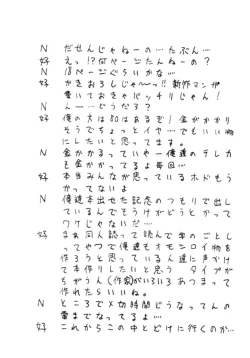 N だせんじゃねーの…たぶん…
好 えっ!?何ページたんねーの?
N 18ページぐらいかな…
好 かきおろしじゃ〜っ!!新作マンガ
書いておきゃバッチリじゃん!
N んー…どうだろ?
好 俺の方は80はあるぞ!金がかかり
そうでちょっとイヤ…でもいい物
にしたいと思ってます。
N 金かかるっていや一俺達のテレカ
も金かかってるよ毎回…
好 本当みんなが思っているホドもう
かってないよ
N 俺達本出てた記念のつもりで出し
ているんでもうけがどうとかって
ワケじゃないだ…
好 まあ同人誌って読んで字のごとし
ってやつで俺達もオモシロイ物を
作ろうと思っている人達に声かけ
て本作りしたいと思う タイプが
ちがう人(作家)がいろいろあつまって
作れたらいいね。
N ところで〆切時間どうなってんの
書までなってるよ…
好 これからこの中とどけに行くのか…